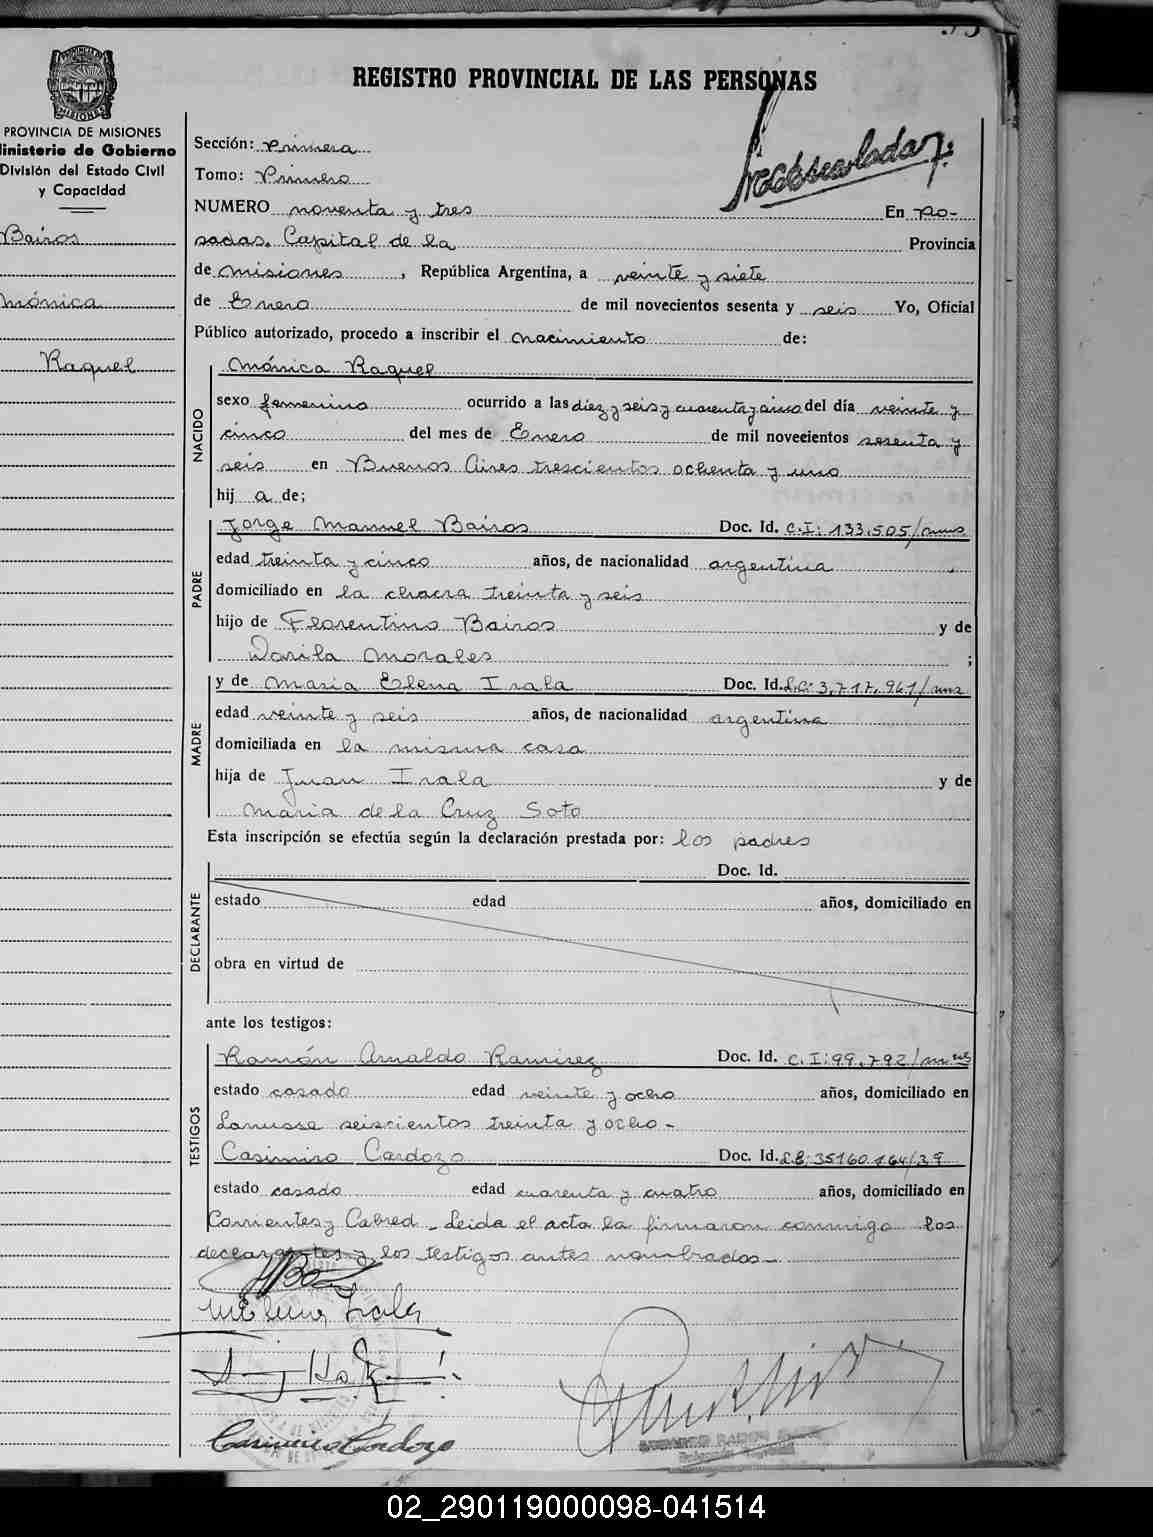 REGISTRO PROVINCIAL DE LAS PERSONAS
PROVINCIA DE MISIONES
Ministerio de Gobierno
División del Estado Civil
y Capacidad
Bairos
Mónica
Raquel
Sección: Primera
Tomo: Primero
NUMERO noventa y tres En Po-
sadas, Capital de la Provincia
de Misiones, República Argentina, a veinte y siete
de Enero de mil novecientos sesenta y seis Yo, Oficial
Público autorizado, procedo a inscribir el nacimiento de:
NACIDO
Mónica Raquel
sexo femenino ocurrido a las diez y seis y cuarenta y cinco del día veinte y
cinco del mes de Enero de mil novecientos sesenta y
seis en Buenos Aires trescientos ochenta y uno
hij a de;
PADRE
Jorge Manuel Bairos Doc. Id. C.I: 133.505/mnes
edad treinta y cinco años, de nacionalidad argentina
domiciliado en la chacra treinta y seis
hijo de Florentino Bairos y de
Dorila Morales ;
MADRE
y de Maria Elena Irala Doc. Id. L.C: 3.717.961/mnes
edad veinte y seis años, de nacionalidad argentina
domiciliada en la misma casa
hija de Juan Irala y de
Maria de la Cruz Soto
Esta inscripción se efectúa según la declaración prestada por: los padres
DECLARANTE
Doc. Id.
estado edad años, domiciliado en
obra en virtud de
ante los testigos:
TESTIGOS
Ramón Arnaldo Ramirez Doc. Id. C.I: 99.792/mnes
estado casado edad veinte y ocho años, domiciliado en
Lanusse seiscientos treinta y ocho -
Casimiro Cardozo Doc. Id. L.E: 35160.164/39
estado casado edad cuarenta y cuatro años, domiciliado en
Corrientes y Cabred - Leida el acta la firmaron conmigo los
declarantes y los testigos antes nombrados -
M Elena Irala
Casimiro Cardozo
02_290119000098-041514